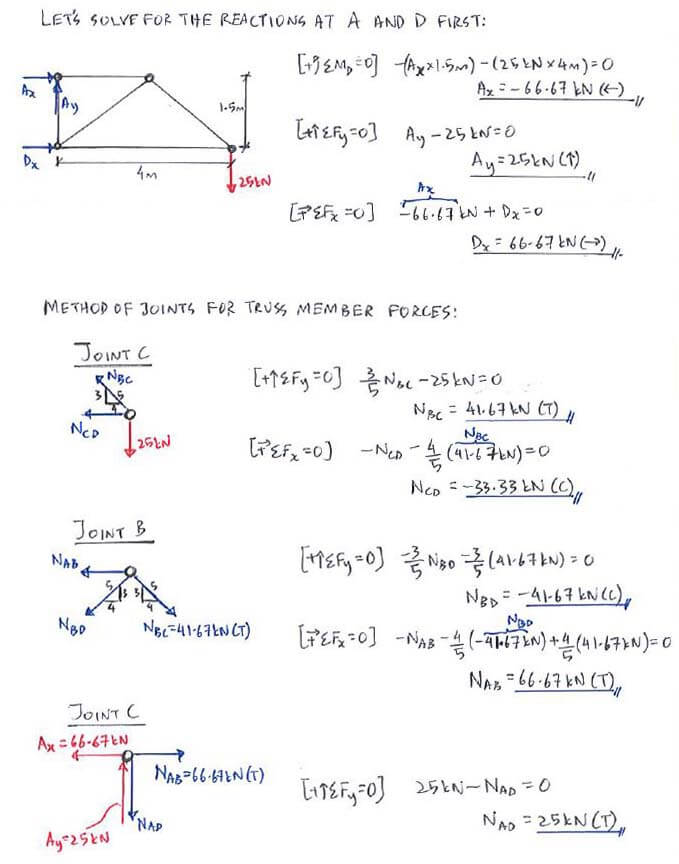 LET'S SOLVE FOR THE REACTIONS AT A AND D FIRST:
[+↺ΣM_D=0] -(A_x×1.5m)-(25kN×4m)=0
A_x=-66.67 kN (←)
A_x
A_y
1.5m
D_x
4m
25kN
[+↑ΣF_y=0] A_y-25kN=0
A_y=25kN(↑)
A_x
[→+ΣF_x=0] -66.67kN+D_x=0
D_x=66.67kN(→)
METHOD OF JOINTS FOR TRUSS MEMBER FORCES:
JOINT C
N_BC
3 5
4
N_CD
25kN
[+↑ΣF_y=0] 3/5 N_BC-25kN=0
N_BC=41.67kN(T)
N_BC
[→+ΣF_x=0] -N_CD-4/5(41.67kN)=0
N_CD=-33.33kN(C)
JOINT B
N_AB
5 3 3 5
4 4
N_BD N_BC=41.67kN(T)
[+↑ΣF_y=0] -3/5 N_BD-3/5(41.67kN)=0
N_BD=-41.67kN(C)
N_BD
[→+ΣF_x=0] -N_AB-4/5(-41.67kN)+4/5(41.67kN)=0
N_AB=66.67kN(T)
JOINT C
A_x=66.67kN
N_AB=66.67kN(T)
N_AD
A_y=25kN
[+↑ΣF_y=0] 25kN-N_AD=0
N_AD=25kN(T)